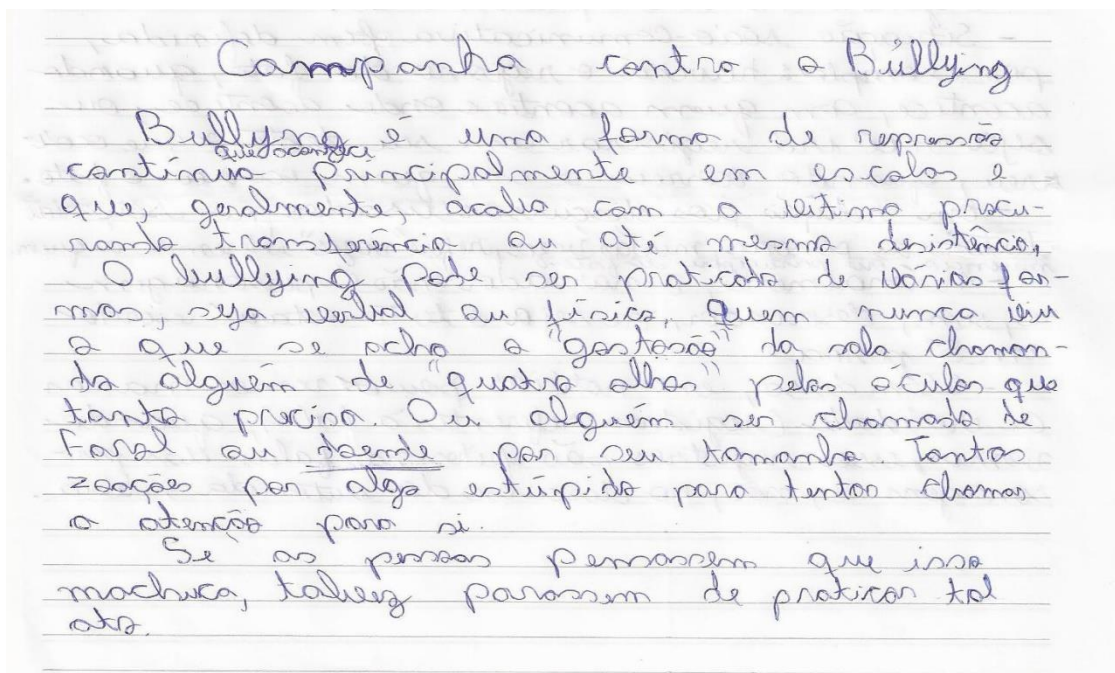 Campanha contra o Bullying
Bullyng é uma forma de repressão
que acontece
contínua principalmente em escolas e
que, geralmente, acaba com a vitima procu-
rando transferência ou até mesmo desistência.
O bullying pode ser praticado de várias for-
mas, seja verbal ou física. Quem nunca viu
o que se acha o "gostosão" da sala chaman-
do alguém de "quatro olhos" pelos óculos que
tanto precisa. Ou alguém ser chamado de
Farol ou doende por seu tamanho. Tantas
zoações por algo estúpido para tentar chamar
a atenção para si.
Se as pessoas pensassem que isso
machuca, talvez parassem de praticar tal
ato.